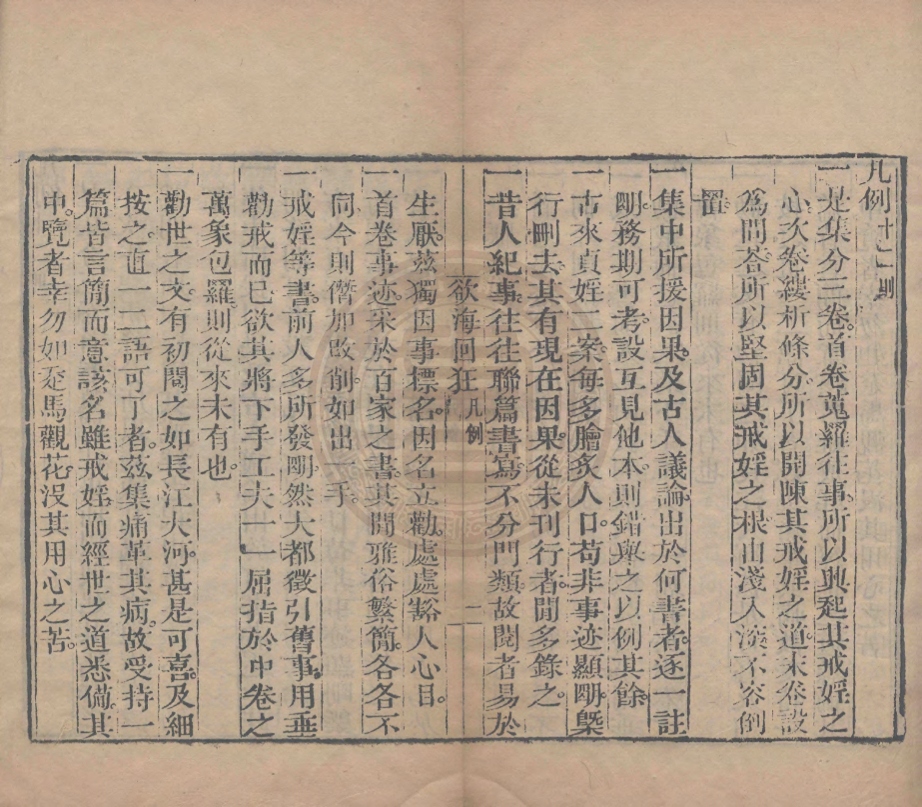 凡例十二則
一是集分三卷。首卷蒐羅往事。所以興起其戒婬之
心。次卷縷析條分。所以開陳其戒婬之道。末卷設
爲問荅。所以堅固其戒婬之根。由淺入深。不容倒
置。
一集中所援因果。及古人議論。出於何書者。逐一註
明。務期可考。設互見他本。則錯舉之。以例其餘。
一古來貞婬二案。每多膾炙人口。苟非事迹顯明。槩
行刪去。其有現在因果。從未刊行者。間多錄之。
一昔人紀事。往往聯篇書寫。不分門類。故閱者易於
欲海回狂 凡例 二
生厭。茲獨因事標名。因名立勸。處處豁人心目。
一首卷事迹。采於百家之書。其間雅俗繁簡。各各不
同。今則僭加改削。如出一手。
一戒婬等書。前人多所發明。然大都徵引舊事。用垂
勸戒而已。欲其將下手工夫。一一屈指於中卷之
萬象包羅。則從來未有也。
一勸世之文。有初閱之如長江大河。甚是可喜。及細
按之。直一二語可了者。茲集痛革其病。故受持一
篇皆言簡而意該。名雖戒婬。而經世之道悉備。其
中。覽者幸勿如走馬觀花。沒其用心之苦。